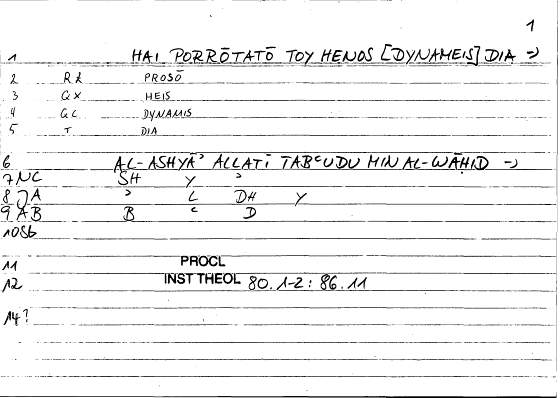 1
1 HAI PORRŌTATŌ TOY HENOS [DYNAMEIS] DIA →
2 RL PROSŌ
3 QX HEIS
4 QC DYNAMIS
5 T DIA
6 AL-ASHYĀʾ ALLATĪ TABʿUDU MIN AL-WĀḤID →
7 NC SH Y ʾ
8 JA ʾ L DH Y
9 AB B ʿ D
10 Sb
11 PROCL
12 INST THEOL 80.1-2: 86.11
14?